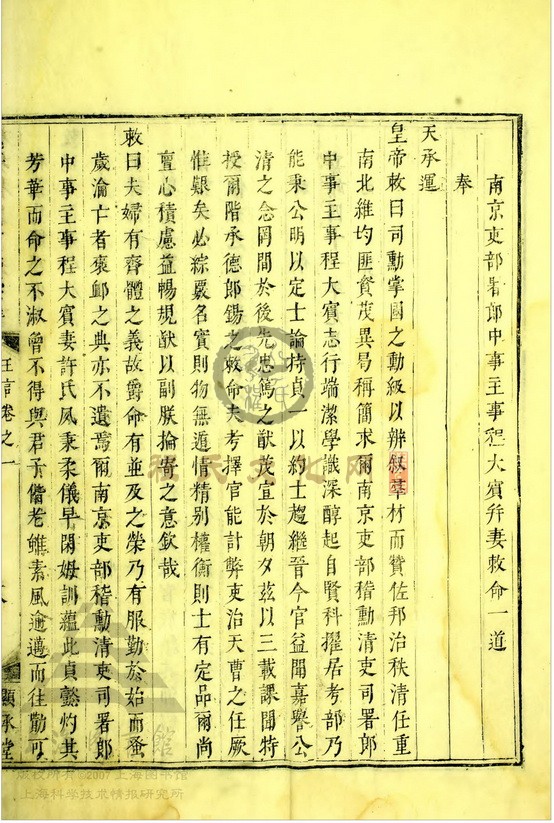 南京吏部署郎中事主事程大賓并妻敕命一道
奉
天承運
皇帝敕曰司勳掌國之勳級以辨叙羣材而贊佐邦治秩清任重
南北維均匪資茂異曷稱簡求爾南京吏部稽勳清吏司署郎
中事主事程大賓志行端潔學識深醇起自賢科擢居考部乃
能秉公明以定士論持貞一以約士趨繼晉今官益聞嘉譽公
清之念罔間於後先忠篤之猷茂宣於朝夕茲以三載課聞特
授爾階承德郎錫之敕命夫考擇官能計弊吏治天曹之任厥
惟艱矣必綜覈名實則物無遁情精別權衡則士有定品爾尚
亶心積慮益暢規猷以副朕掄寄之意欽哉
敕曰夫婦有齊體之義故爵命有並及之榮乃有服勤於始而蚤
歲淪亡者褒卹之典亦不遺焉爾南京吏部稽勳清吏司署郎
中事主事程大賓妻許氏夙秉柔儀早閑姆訓蘊此貞懿灼其
芳華而命之不淑曾不得與君子偕老雖素風逾邁而往勩可
王言卷之一
顯承堂
程氏文化网
版权所有©2007上海图书馆
上海科学技术情报研究所